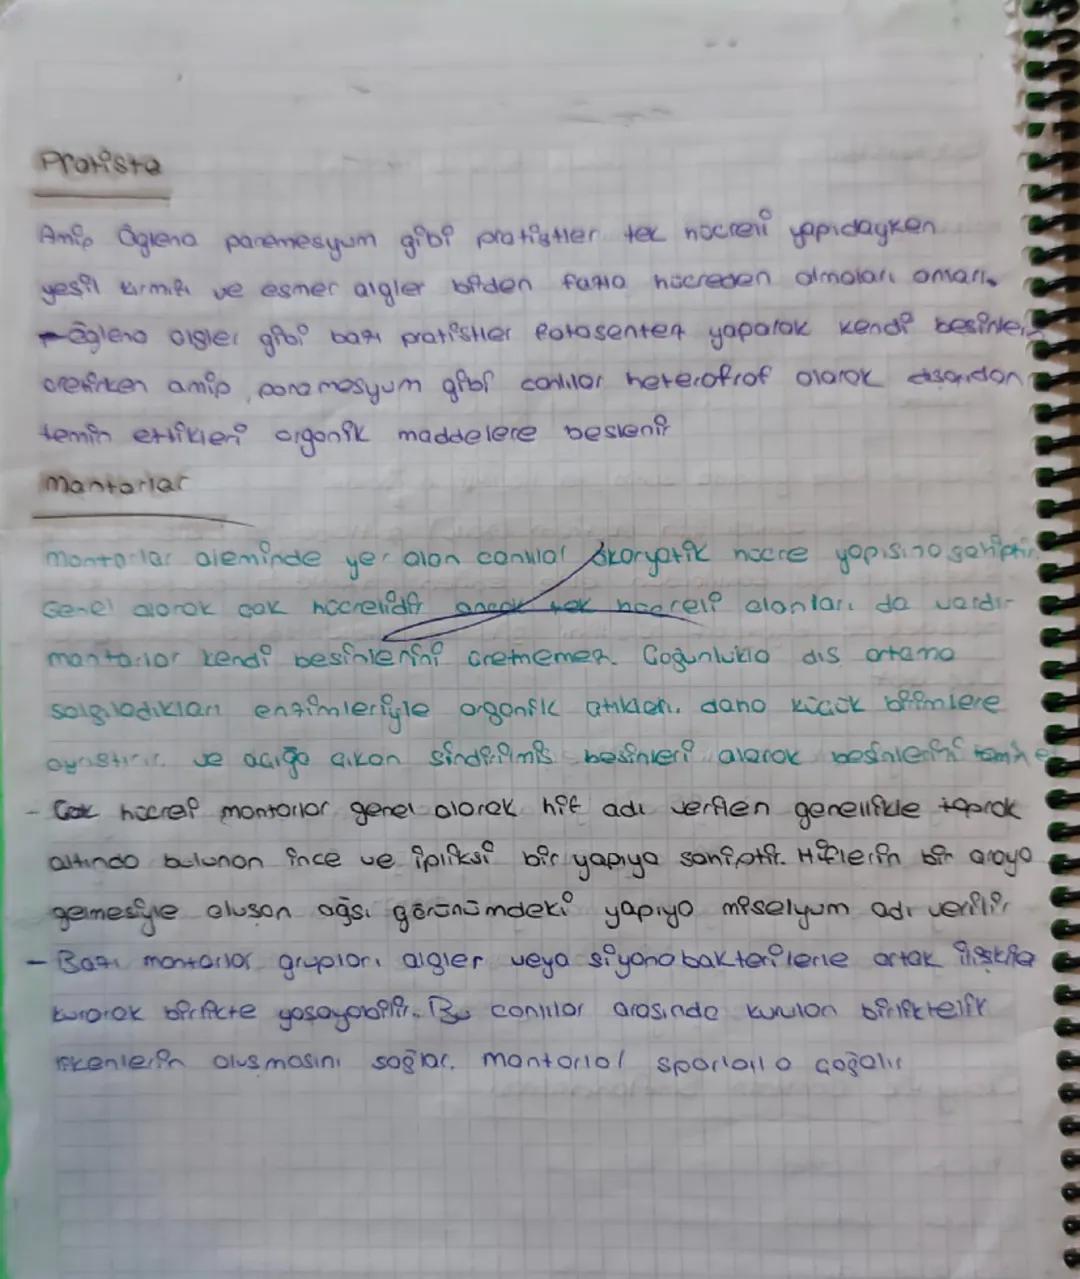 Protista
Amip Öglena paremesyum gibi protistler tek hücreli yapıdayken
yeşil kırmızı ve esmer algler birden fazla hücreden olmaları
- Öglena algler gibi bazı protistler fotosentez yaparak kendi besinlerini
üretirken amip, paramesyum gibi canlılar heterotrof olarak dışarıdan
temin ettikleri organik maddelere beslenir
Mantarlar
Mantarlar aleminde yer alan canlılar ökaryotik hücre yapısına sahiptir
Genel olarak çok hücrelidir ancak tek hücreli olanları da vardır
mantarlar kendi besinlerini üretmemez. Çoğunlukla dış ortama
salgıladıkları enzimleriyle organik atıkları daha küçük birimlere
ayrıştırır ve açığa çıkan sindirilmiş besinleri alarak besinlerini temin e
- Çok hücreli mantarlar genel olarak hif adı verilen genellikle toprak
altında bulunan ince ve ipliksi bir yapıya sahiptir. Hiflerin bir araya
gemesiyle oluşan ağsı görünümdeki yapıya miselyum adı verilir
- Bazı mantarlar grupları algler veya siyanobakterilerle ortak ilişkiler
kurarak birlikte yaşayabilir. Bu canlılar arasında kurulan birliktelik
likenlerin oluşmasını sağlar. mantarlar sporlarla çoğalır